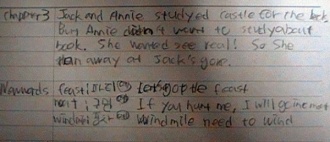 chapter3 Jack and Annie studyed castle for the book
But Annie didn't want to study about
book. She wanted see real! So She
ran away at Jack's gone.
feast 파티 Let's go the feast
구원 If you hurt me, I will go
windmile need to wind